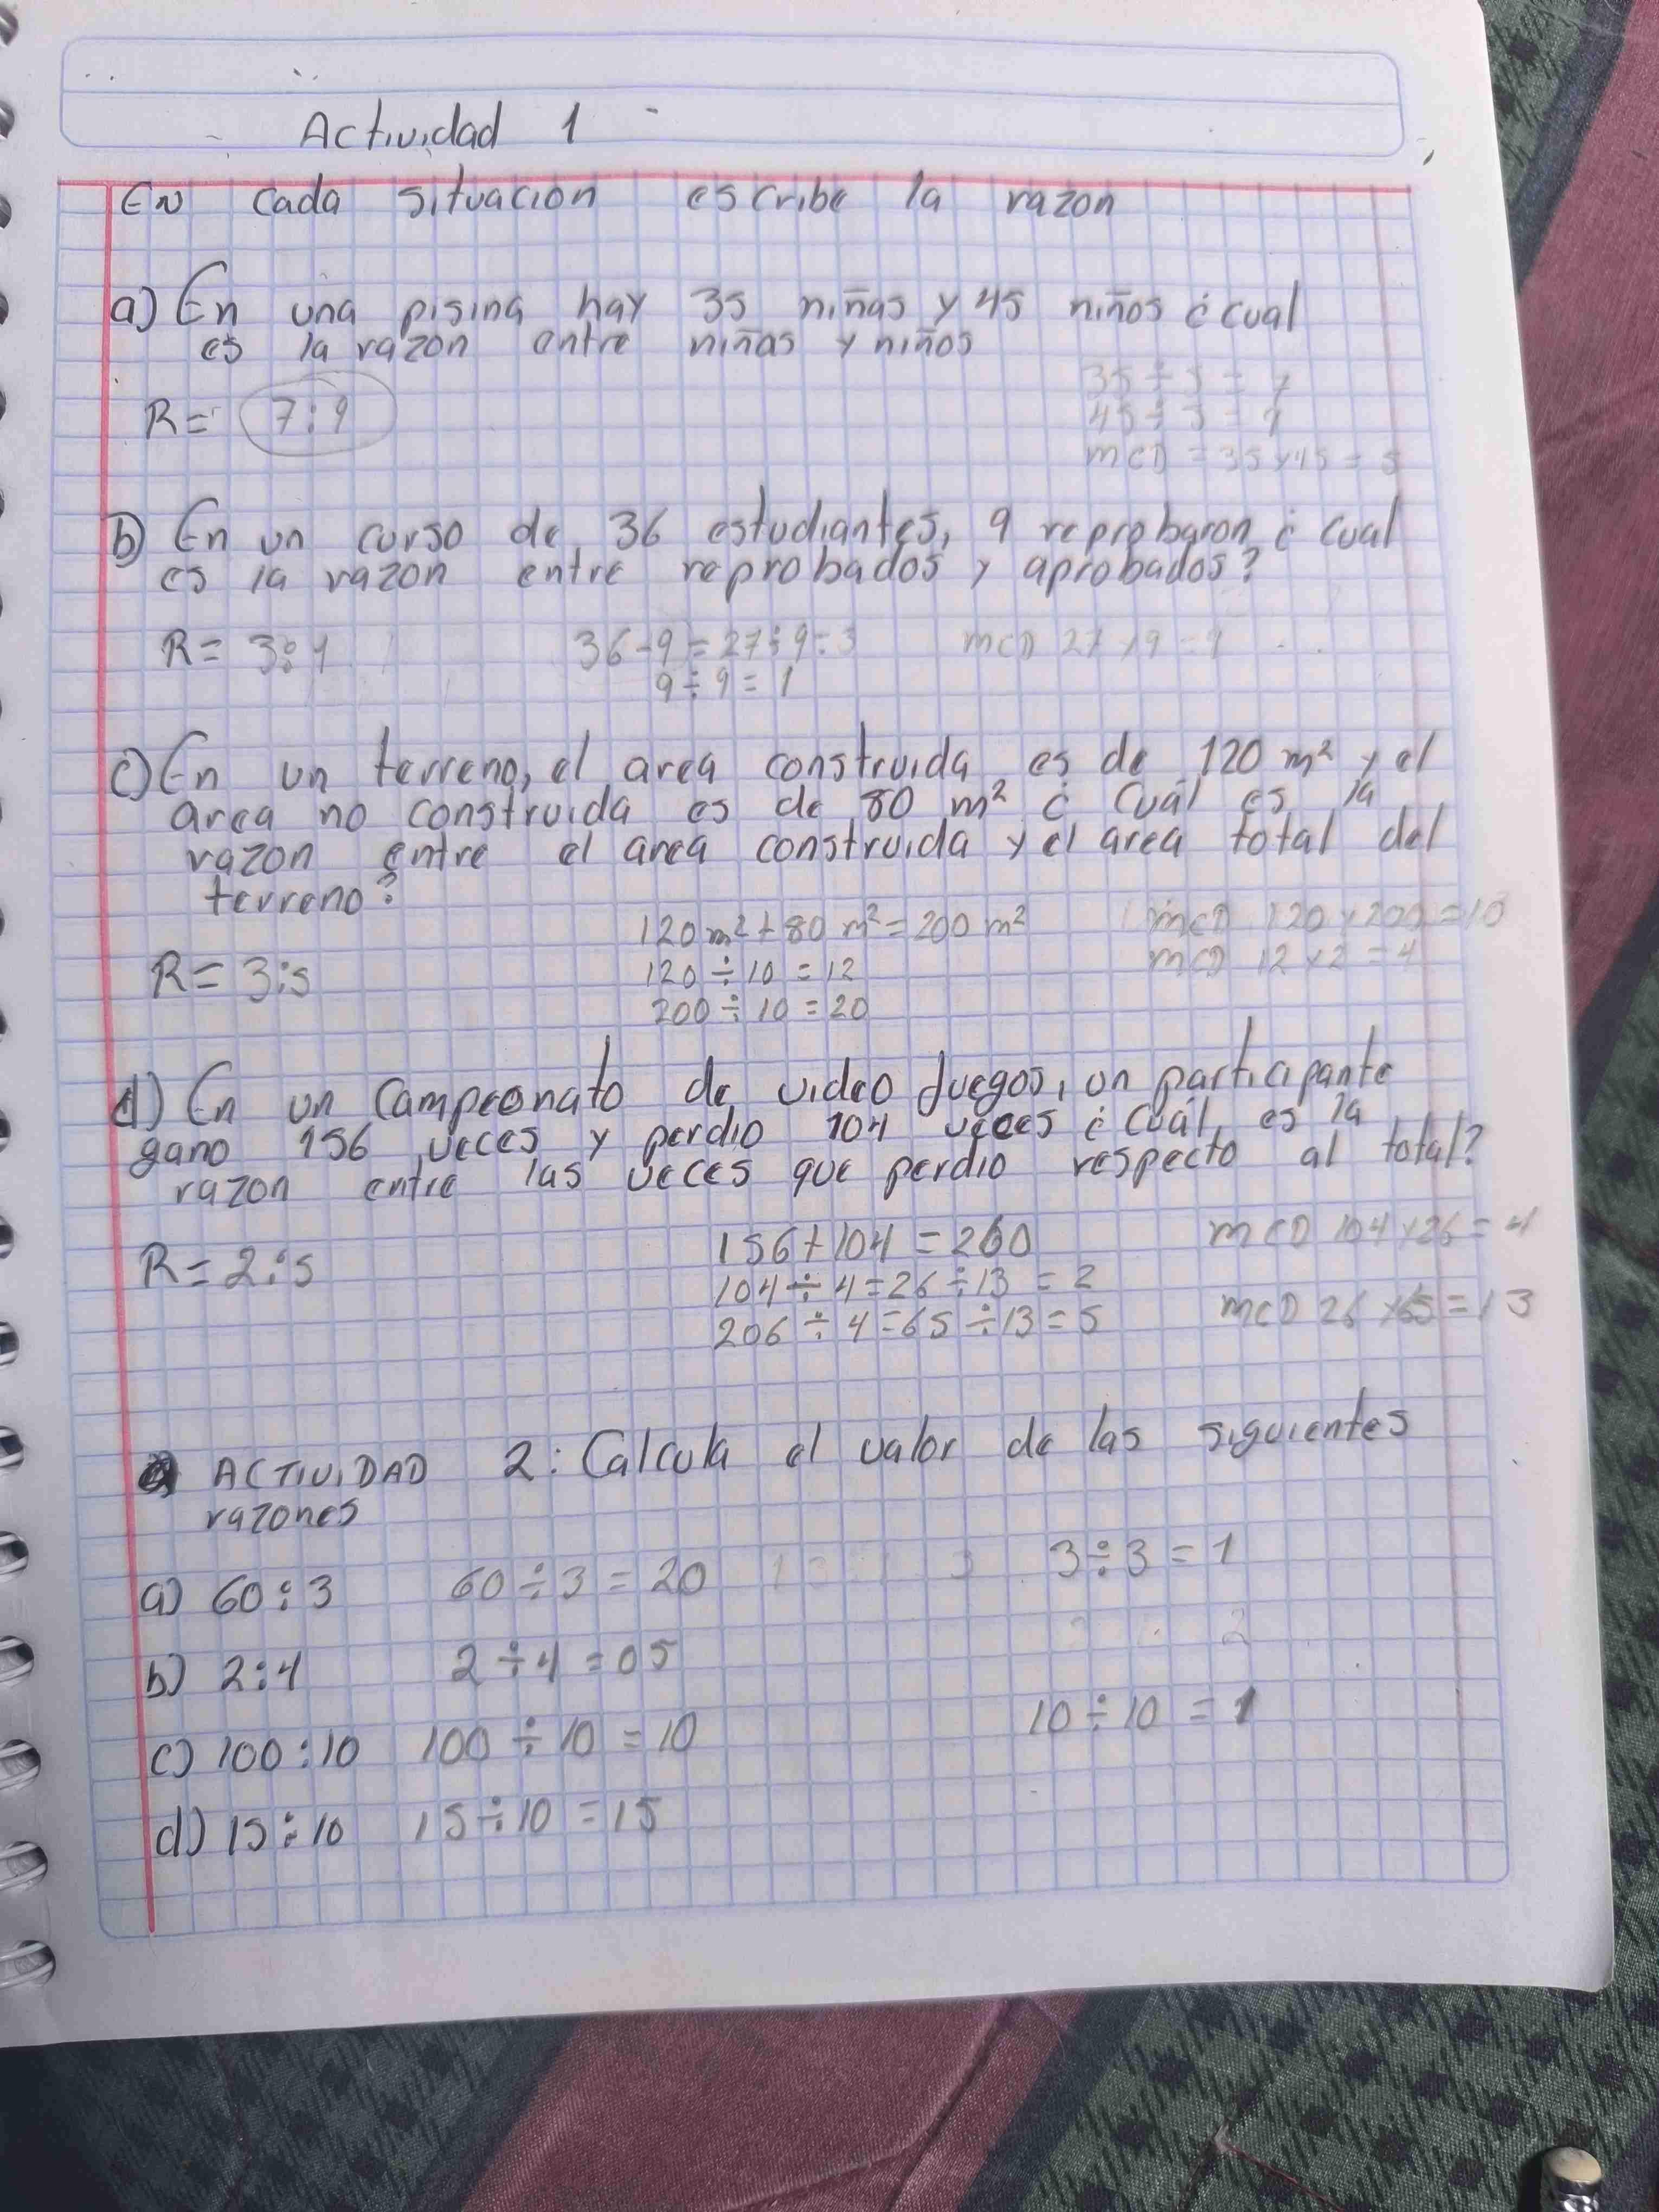 Actividad 1
En cada situacion escribe la razon
a) En una pisina hay 35 niñas y 45 niños ¿cual
es la razon entre niñas y niños
35 ÷ 5 = 7
R= 7:9
45 ÷ 5 = 9
mcD = 35 y 45 = 5
b) En un curso de 36 estudiantes, 9 reprobaron ¿cual
es la razon entre reprobados y aprobados?
R= 3:1 36-9=27÷9=3 mcD 27 y 9 = 9
9÷9=1
c) En un terreno, el area construida es de 120 m² y el
area no construida es de 80 m² ¿Cuál es la
razon entre el area construida y el area total del
terreno?
120m²+80 m²=200 m² mcD 120 y 200 =10
R= 3:5 120÷10 =12 mcD 12 y 2 = 4
200÷10=20
d) En un campeonato de video juegos, un participante
gano 156 veces y perdio 104 veces ¿Cuál es la
razon entre las veces que perdio respecto al total?
R= 2:5 156+104=260 mcD 104 y 26 = 4
104÷4=26÷13=2
206÷4=65÷13=5 mcD 26 y 65 = 13
ACTIVIDAD 2: Calcula el valor de las siguientes
razones
a) 60:3 60÷3=20 3÷3=1
b) 2:4 2÷4=05
c) 100:10 100÷10=10 10÷10=1
d) 15÷10 15÷10=15